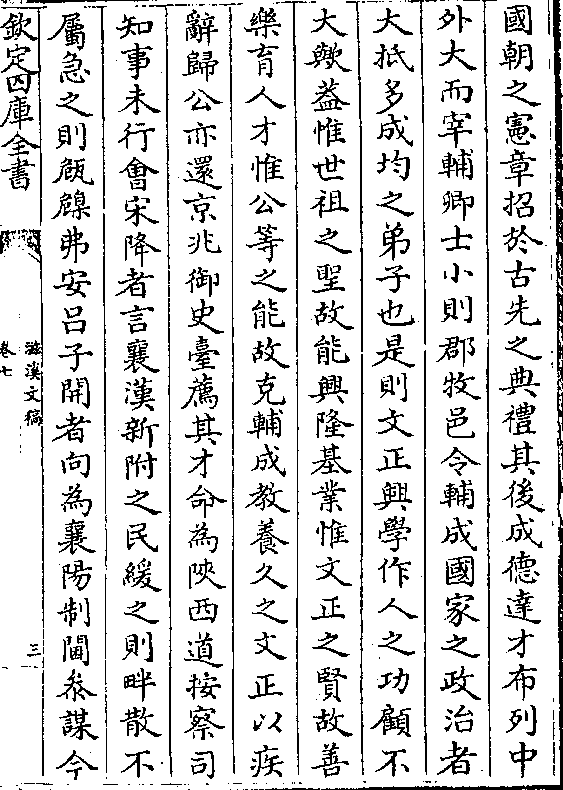 國朝之憲章招於古先之典禮其後成德達才布列中
外大而宰輔卿士小則郡牧邑令輔成國家之政治者
大抵多成均之弟子也是則文正興學作人之功顧不
大歟葢惟世祖之聖故能興隆基業惟文正之賢故善
樂育人才惟公等之能故克輔成教養久之文正以疾
辭歸公亦還京兆御史臺薦其才命為陜西道按察司
知事未行會宋降者言襄漢新附之民緩之則畔散不
屬急之則𠨜𠨚弗安吕子開者向為襄陽制閫叅謀今
欽定四庫全書
滋溪文稿
卷七
三